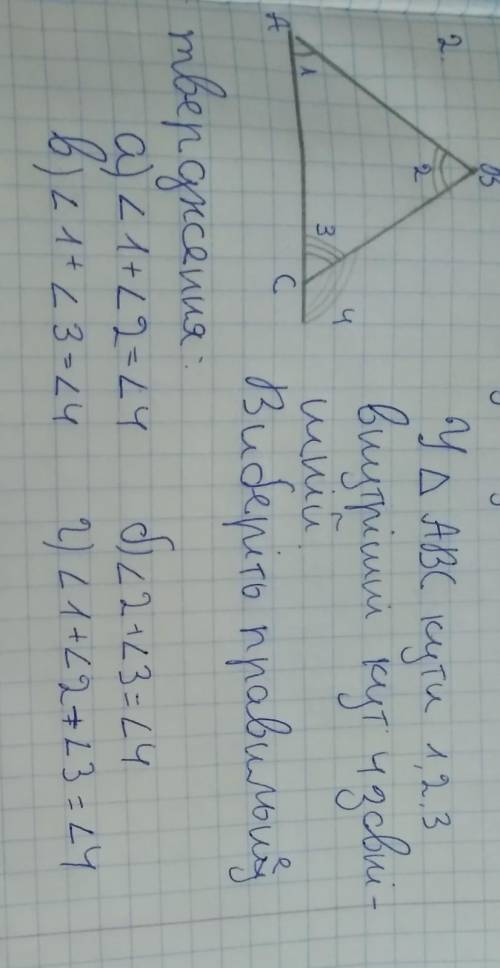 2.
B
2
A
1
3
C
4
У △ ABC кути 1,2,3
внутрішні кут 4 зовні-
шній.
Виберіть правильний
твердження:
а) ∠1+∠2=∠4 б) ∠2+∠3=∠4
в) ∠1+∠3=∠4 г) ∠1+∠2+∠3=∠4